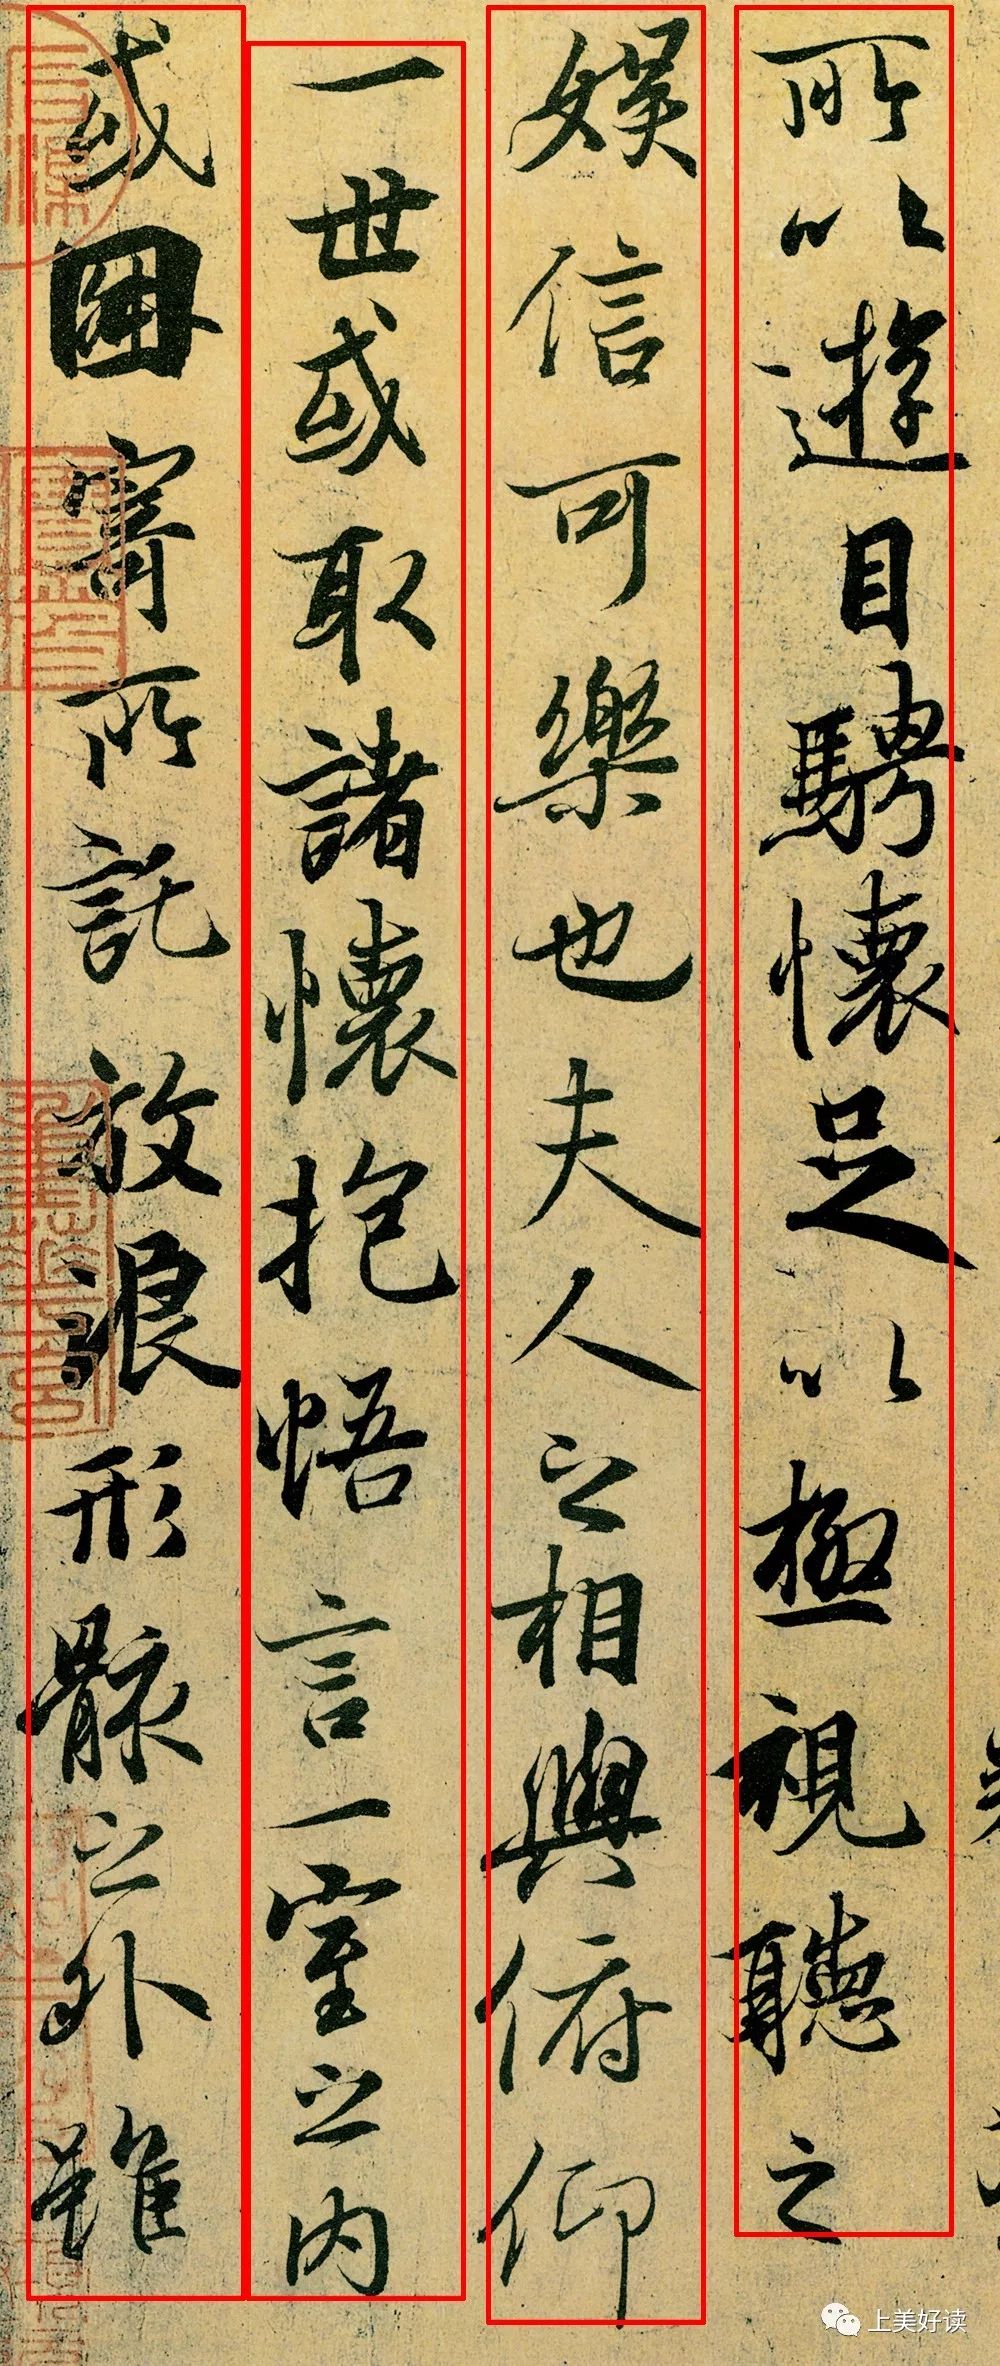 所以遊目騁懷足以極視聽之
娛信可樂也夫人之相與俯仰
一世或取諸懷抱悟言一室之內
或因寄所託放浪形骸之外雖
上美好读